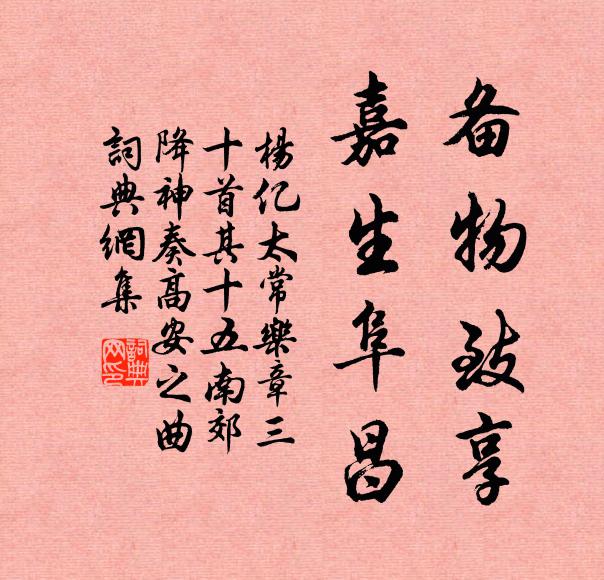 备物致享
嘉生阜昌
楊亿太常樂章三
十首其十五南郊
降神奏高安之曲
詞典網集
詞典
网印